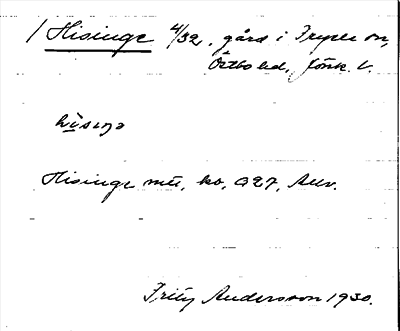 / Hisinge 4/32, gård i Fryele sn,
Östbo hd, Jönk. l.
hìsega
Hisinge mtl, ko, 927, Auv.
Fritz Andersson 1930.